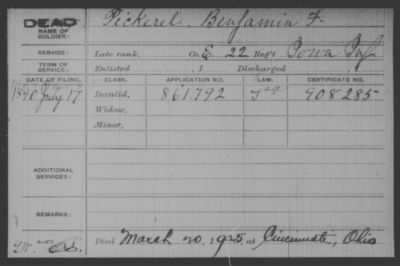 DEAD Pickerel, Benjamin F.
NAME OF SOLDIER:
SERVICE: Late rank, Co. E 22 Reg't Iowa Inf
TERM OF SERVICE: Enlisted , 1 Discharged
DATE OF FILING. CLASS. APPLICATION NO. LAW. CERTIFICATE NO.
1890 July 17 Invalid, 861.792 908 285
Widow,
Minor,
ADDITIONAL SERVICES:
REMARKS:
Died March 20, 1925, at Cincinnati, Ohio